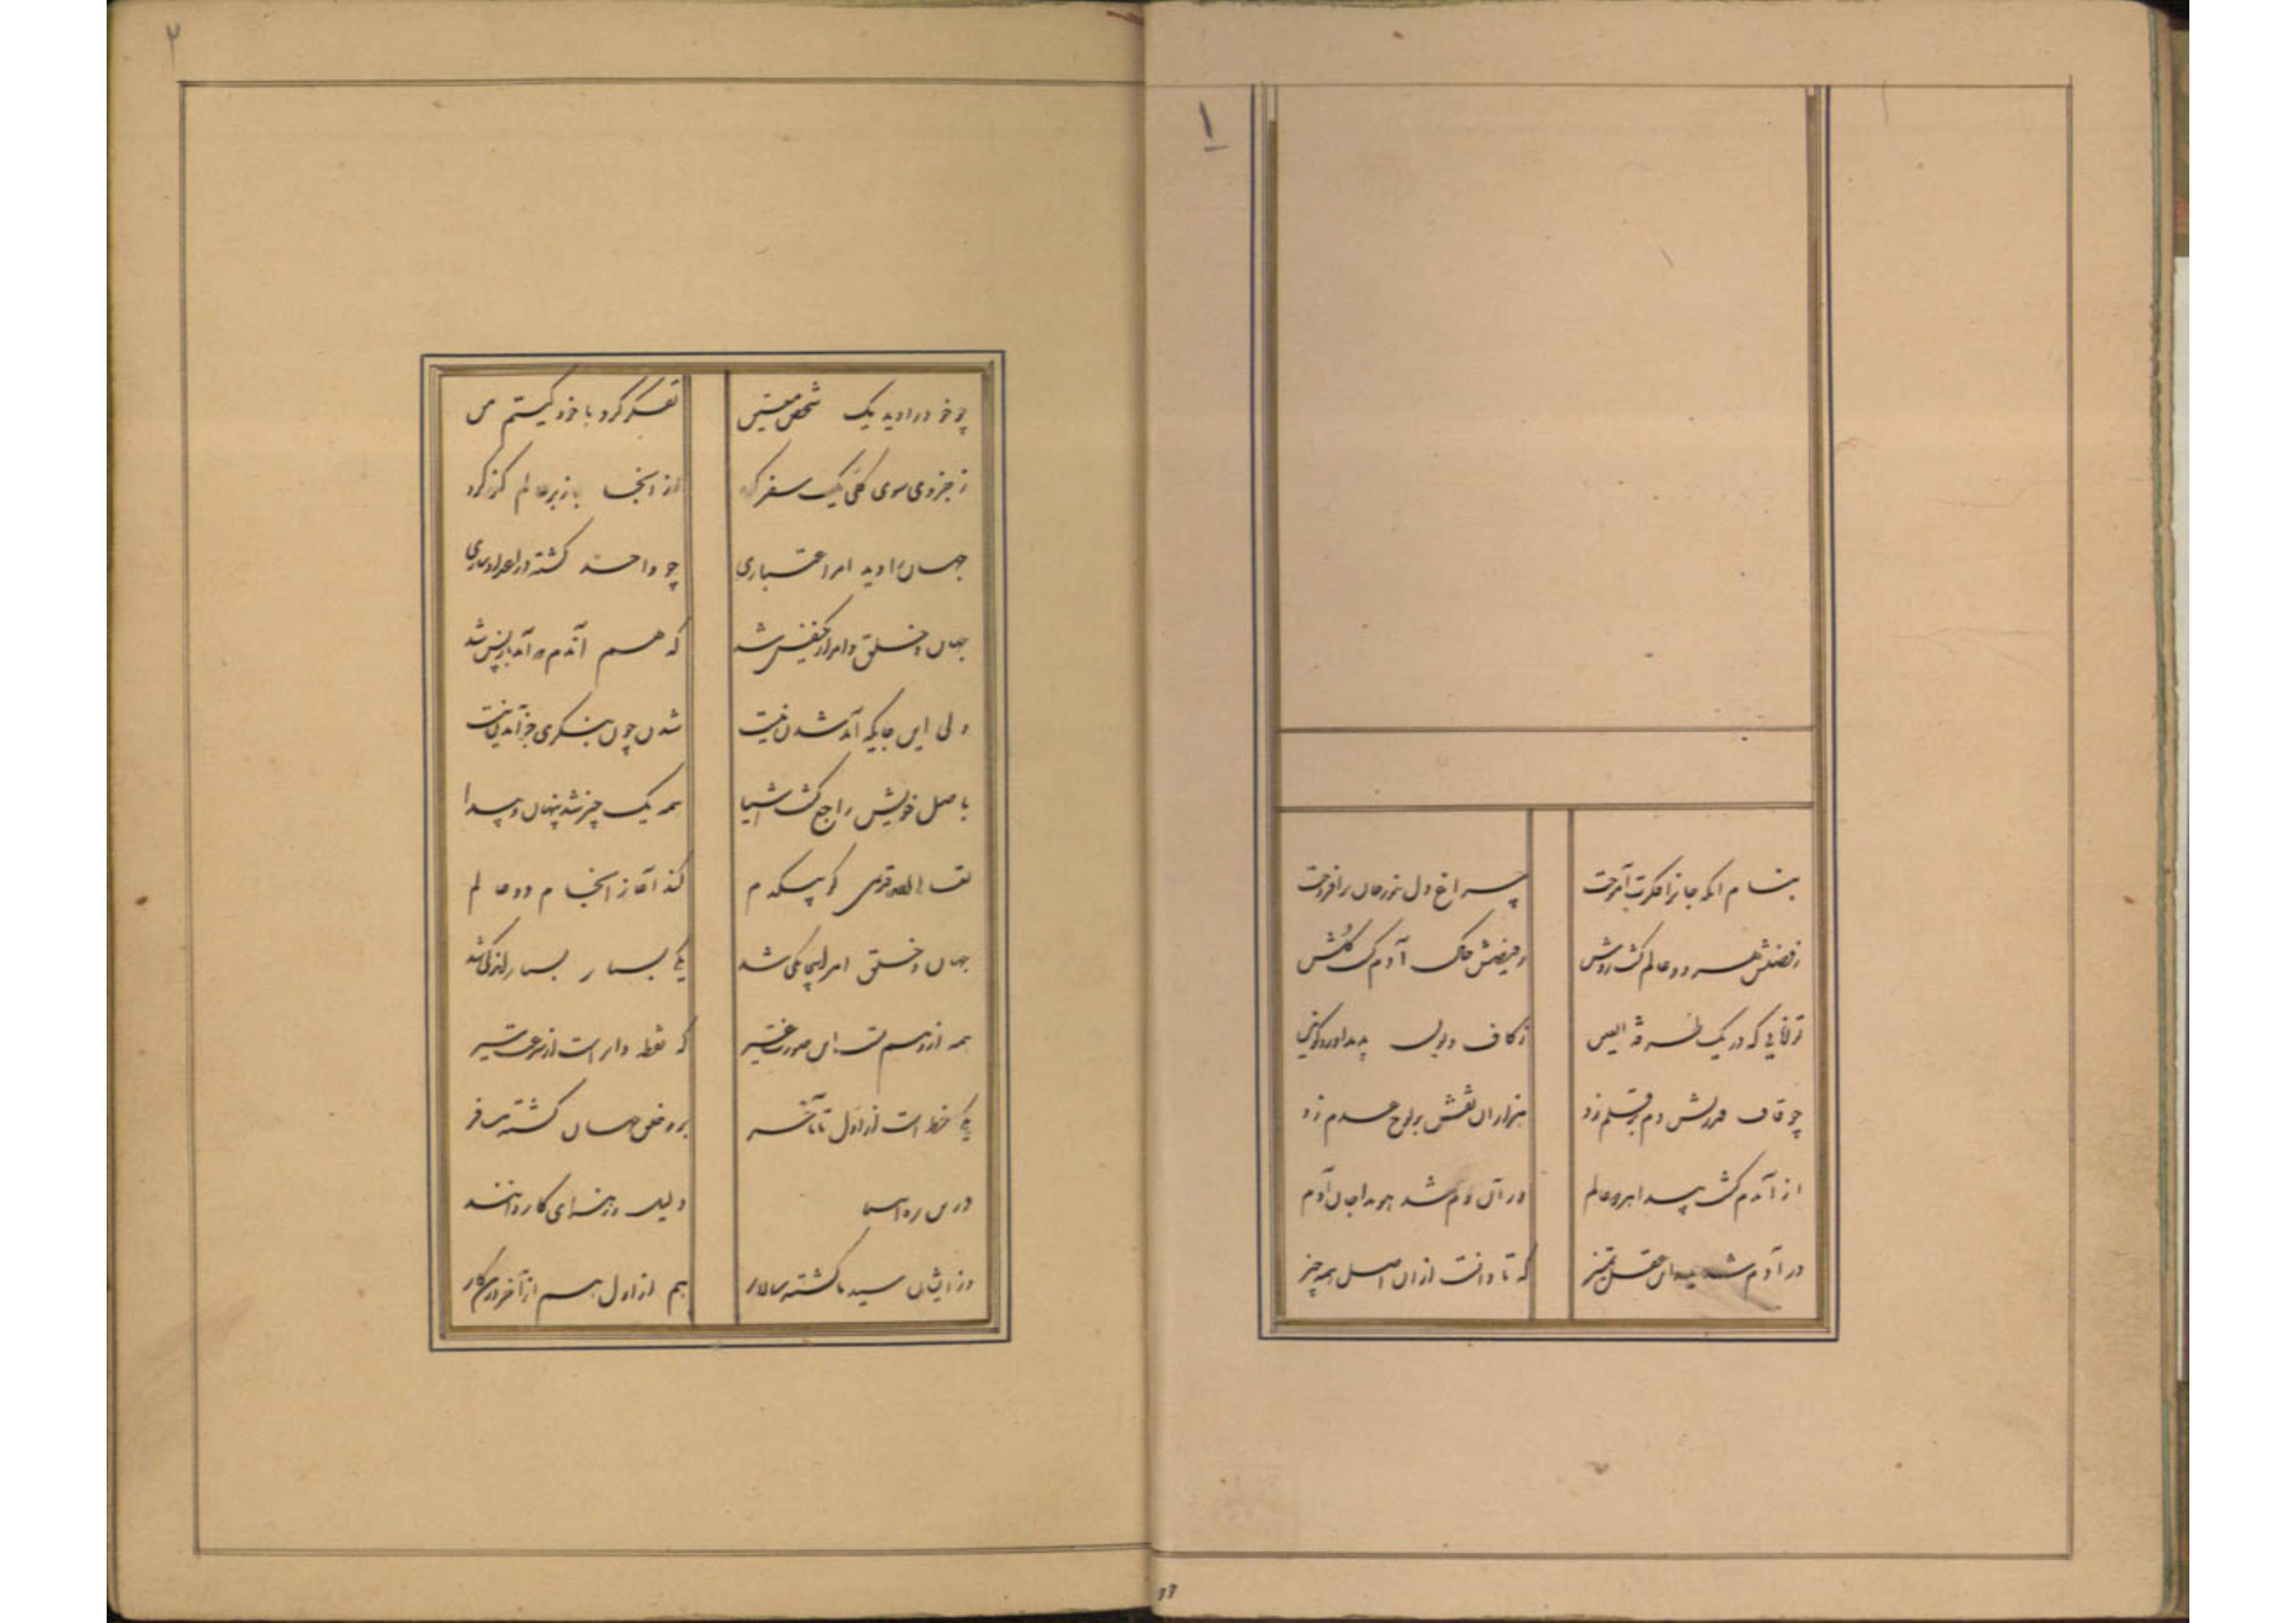 ۱
بنام آنکه جانرا فکرت آموخت چراغ دل بنور جان برافروخت
ز فضلش هر دو عالم گشت روشن ز فیضش خاک آدم گشت گلشن
توانایی که در یک طرفة العین ز کاف و نون پدید آورد کونین
چو قاف قدرتش دم بر قلم زد هزاران نقش بر لوح عدم زد
از آندم گشت پیدا هر دو عالم در آن دم شد هویدا جان آدم
در آدم شد پدید این عقل و تمیز که تا دانست از آن اصل همه چیز
۲
چو خود را دید یک شخص معین تفکر کرد با خود کیستم من
ز جزوی سوی کلی یک سفر کرد از آنجا باز بر عالم گذر کرد
جهان را دید امر اعتباری چو واحد گشته در اعداد ساری
جهان خلق و امر از یکنفس شد که هم آندم که آمد باز پس شد
ولی این جایگه آمد شدن نیست شدن چون بنگری جز آمدن نیست
باصل خویش راجع گشت اشیا همه یک چیز شد پنهان و پیدا
تعالی الله قدیمی کو بیکدم کند آغاز و انجام دو عالم
جهان خلق و امر اینجا یکی شد یکی بسیار و بسیار اندکی شد
همه از وهم تست این صورت غیر که نقطه دایر است از سرعت سیر
یکی خط است از اول تا بآخر برو خلق جهان گشته مسافر
درین ره انبیا دلیل و رهنمای کاروانند
وز ایشان سید ما گشته سالار هم از اول هم از آخر درین کار